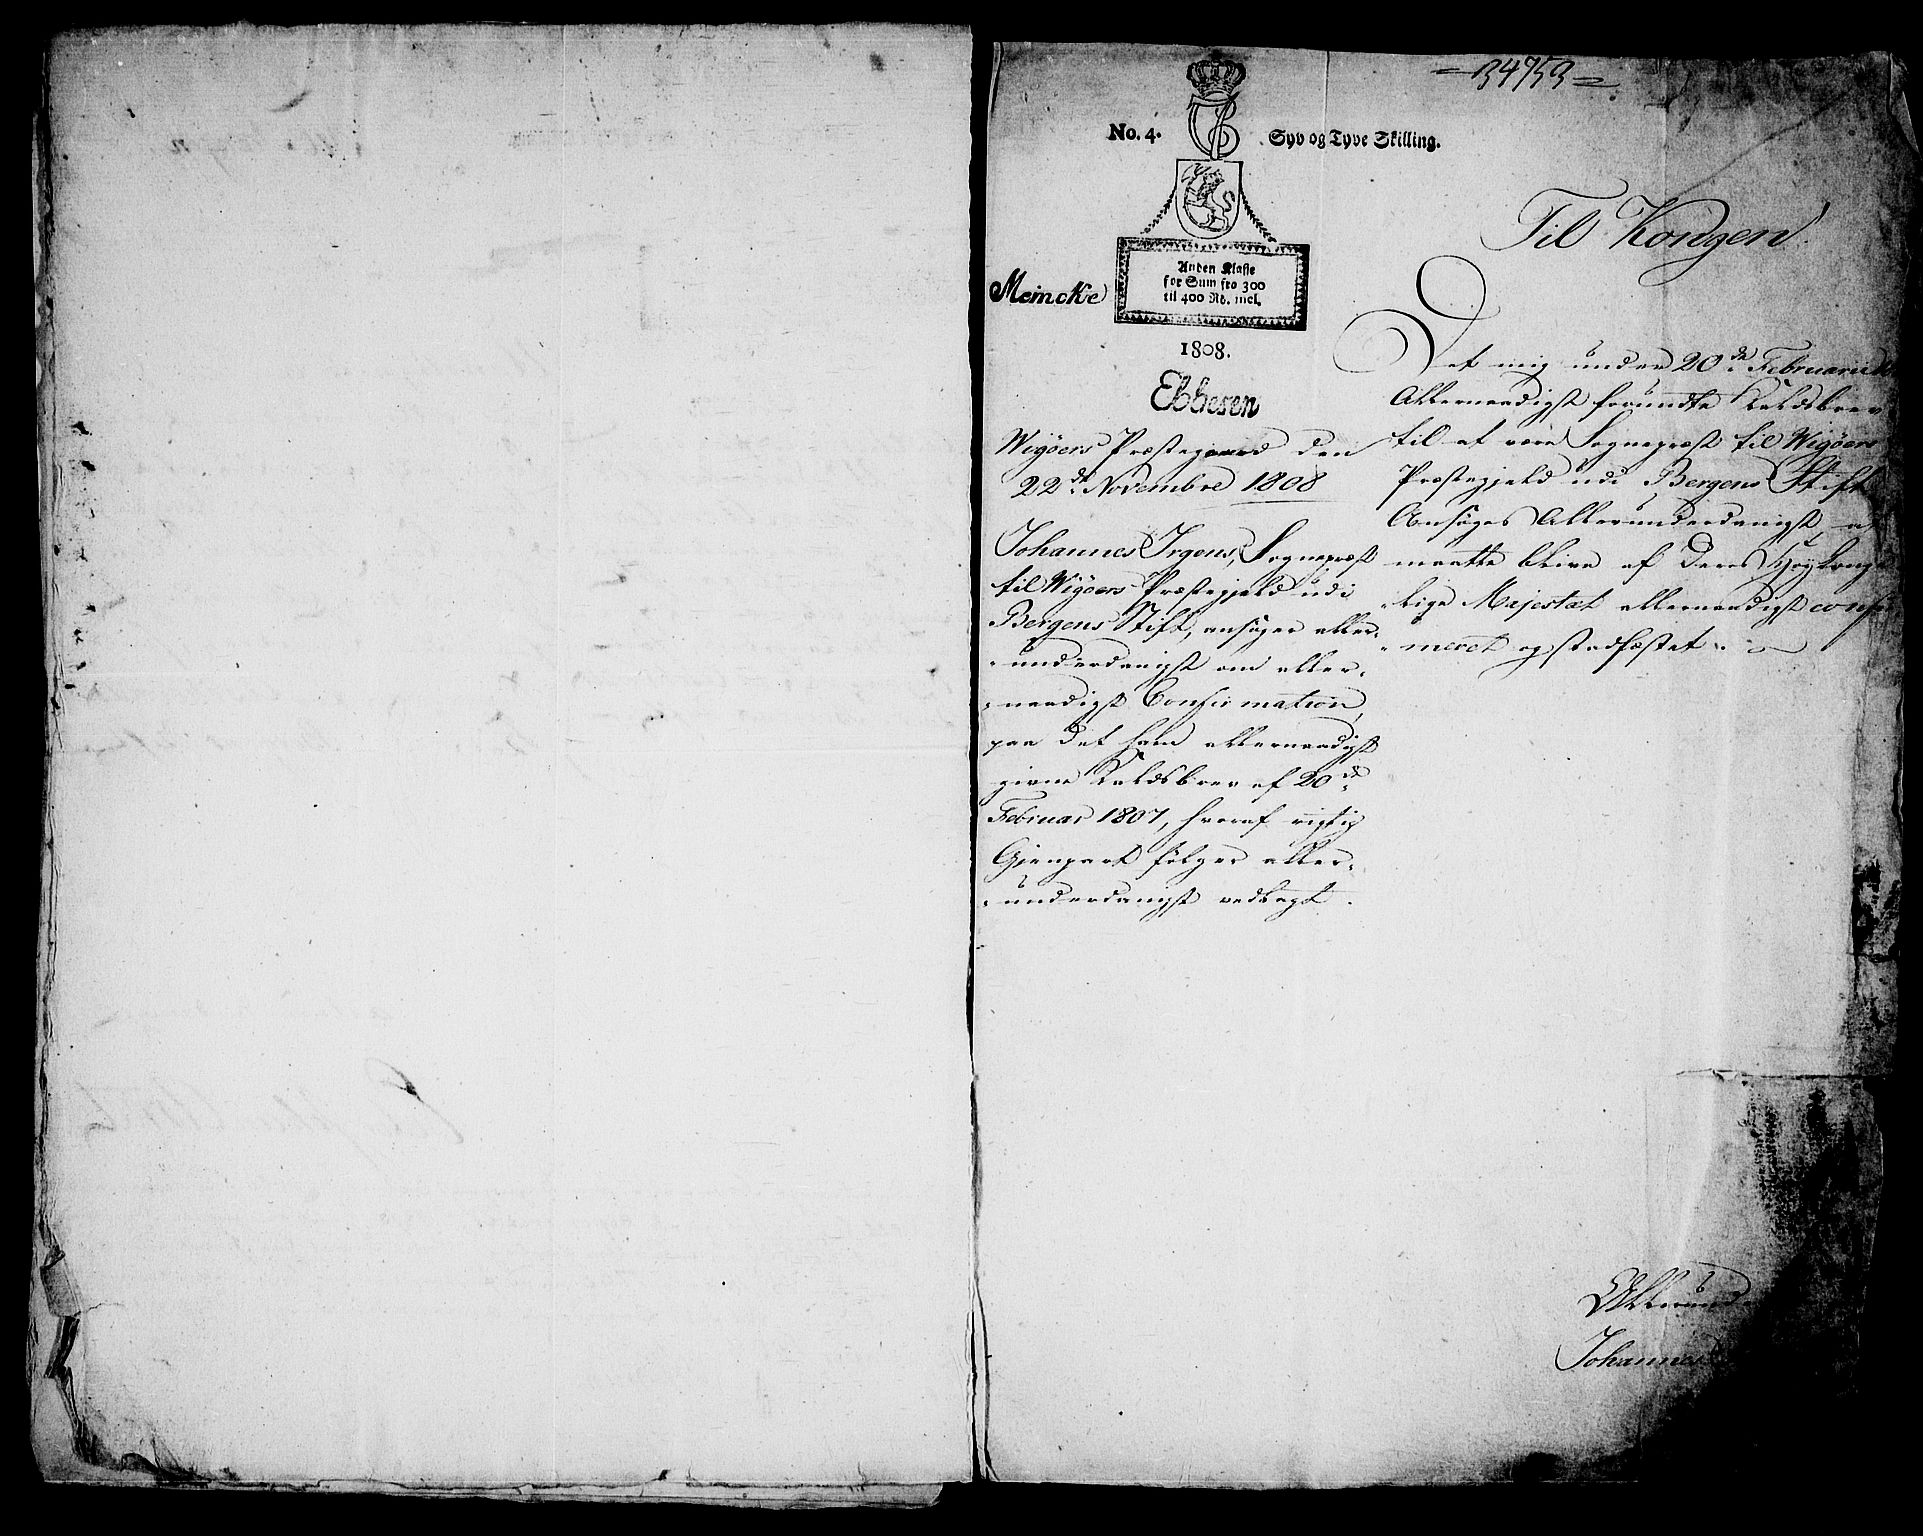 34753
No. 4.
Syv og Tyve Skilling.
Anden Klasse
for Sum fra 300
til 400 Rd. incl.
Meincke
1808.
Ebbesen
Wigøers Præstegaard den
22de Novembre 1808
Johannes Irgens, Sognepræst
til Wigøers Præstegjeld udi
Bergens Stift, ansøger aller-
-underdanigst om aller-
-naadigst Confirmation,
paa det ham allernaadigst
givne Kaldsbrev af 20de
Februar 1807, hvoraf rigtig
Gjenpart følger aller-
-underdanigst vedlagt.
Til Kongen.
Det mig under 20de Februarii
Allernaadigst forundte Kaldsbrev
til at være Sognepræst til Wigøers
Præstegjeld udi Bergens Stift
Ansøges Allerunderdanigst, at
maatte blive af Deres Kongelige
-lige Majestæt allernaadigst
-meret og stadfæstet.
Allerund
Johannes